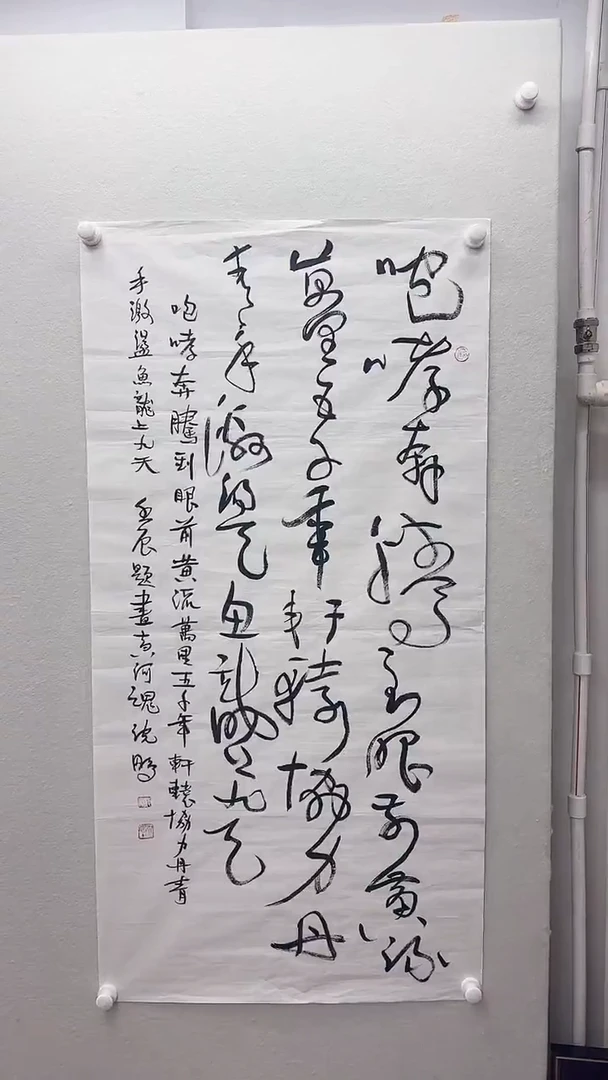 咆哮奔騰到眼前黃流
萬里五千年軒轅協力丹
青手激盪魚龍上九天
咆哮奔騰到眼前黃流萬里五千年軒轅協力丹青
手激盪魚龍上九天 壬辰題畫黃河魂沈鵬